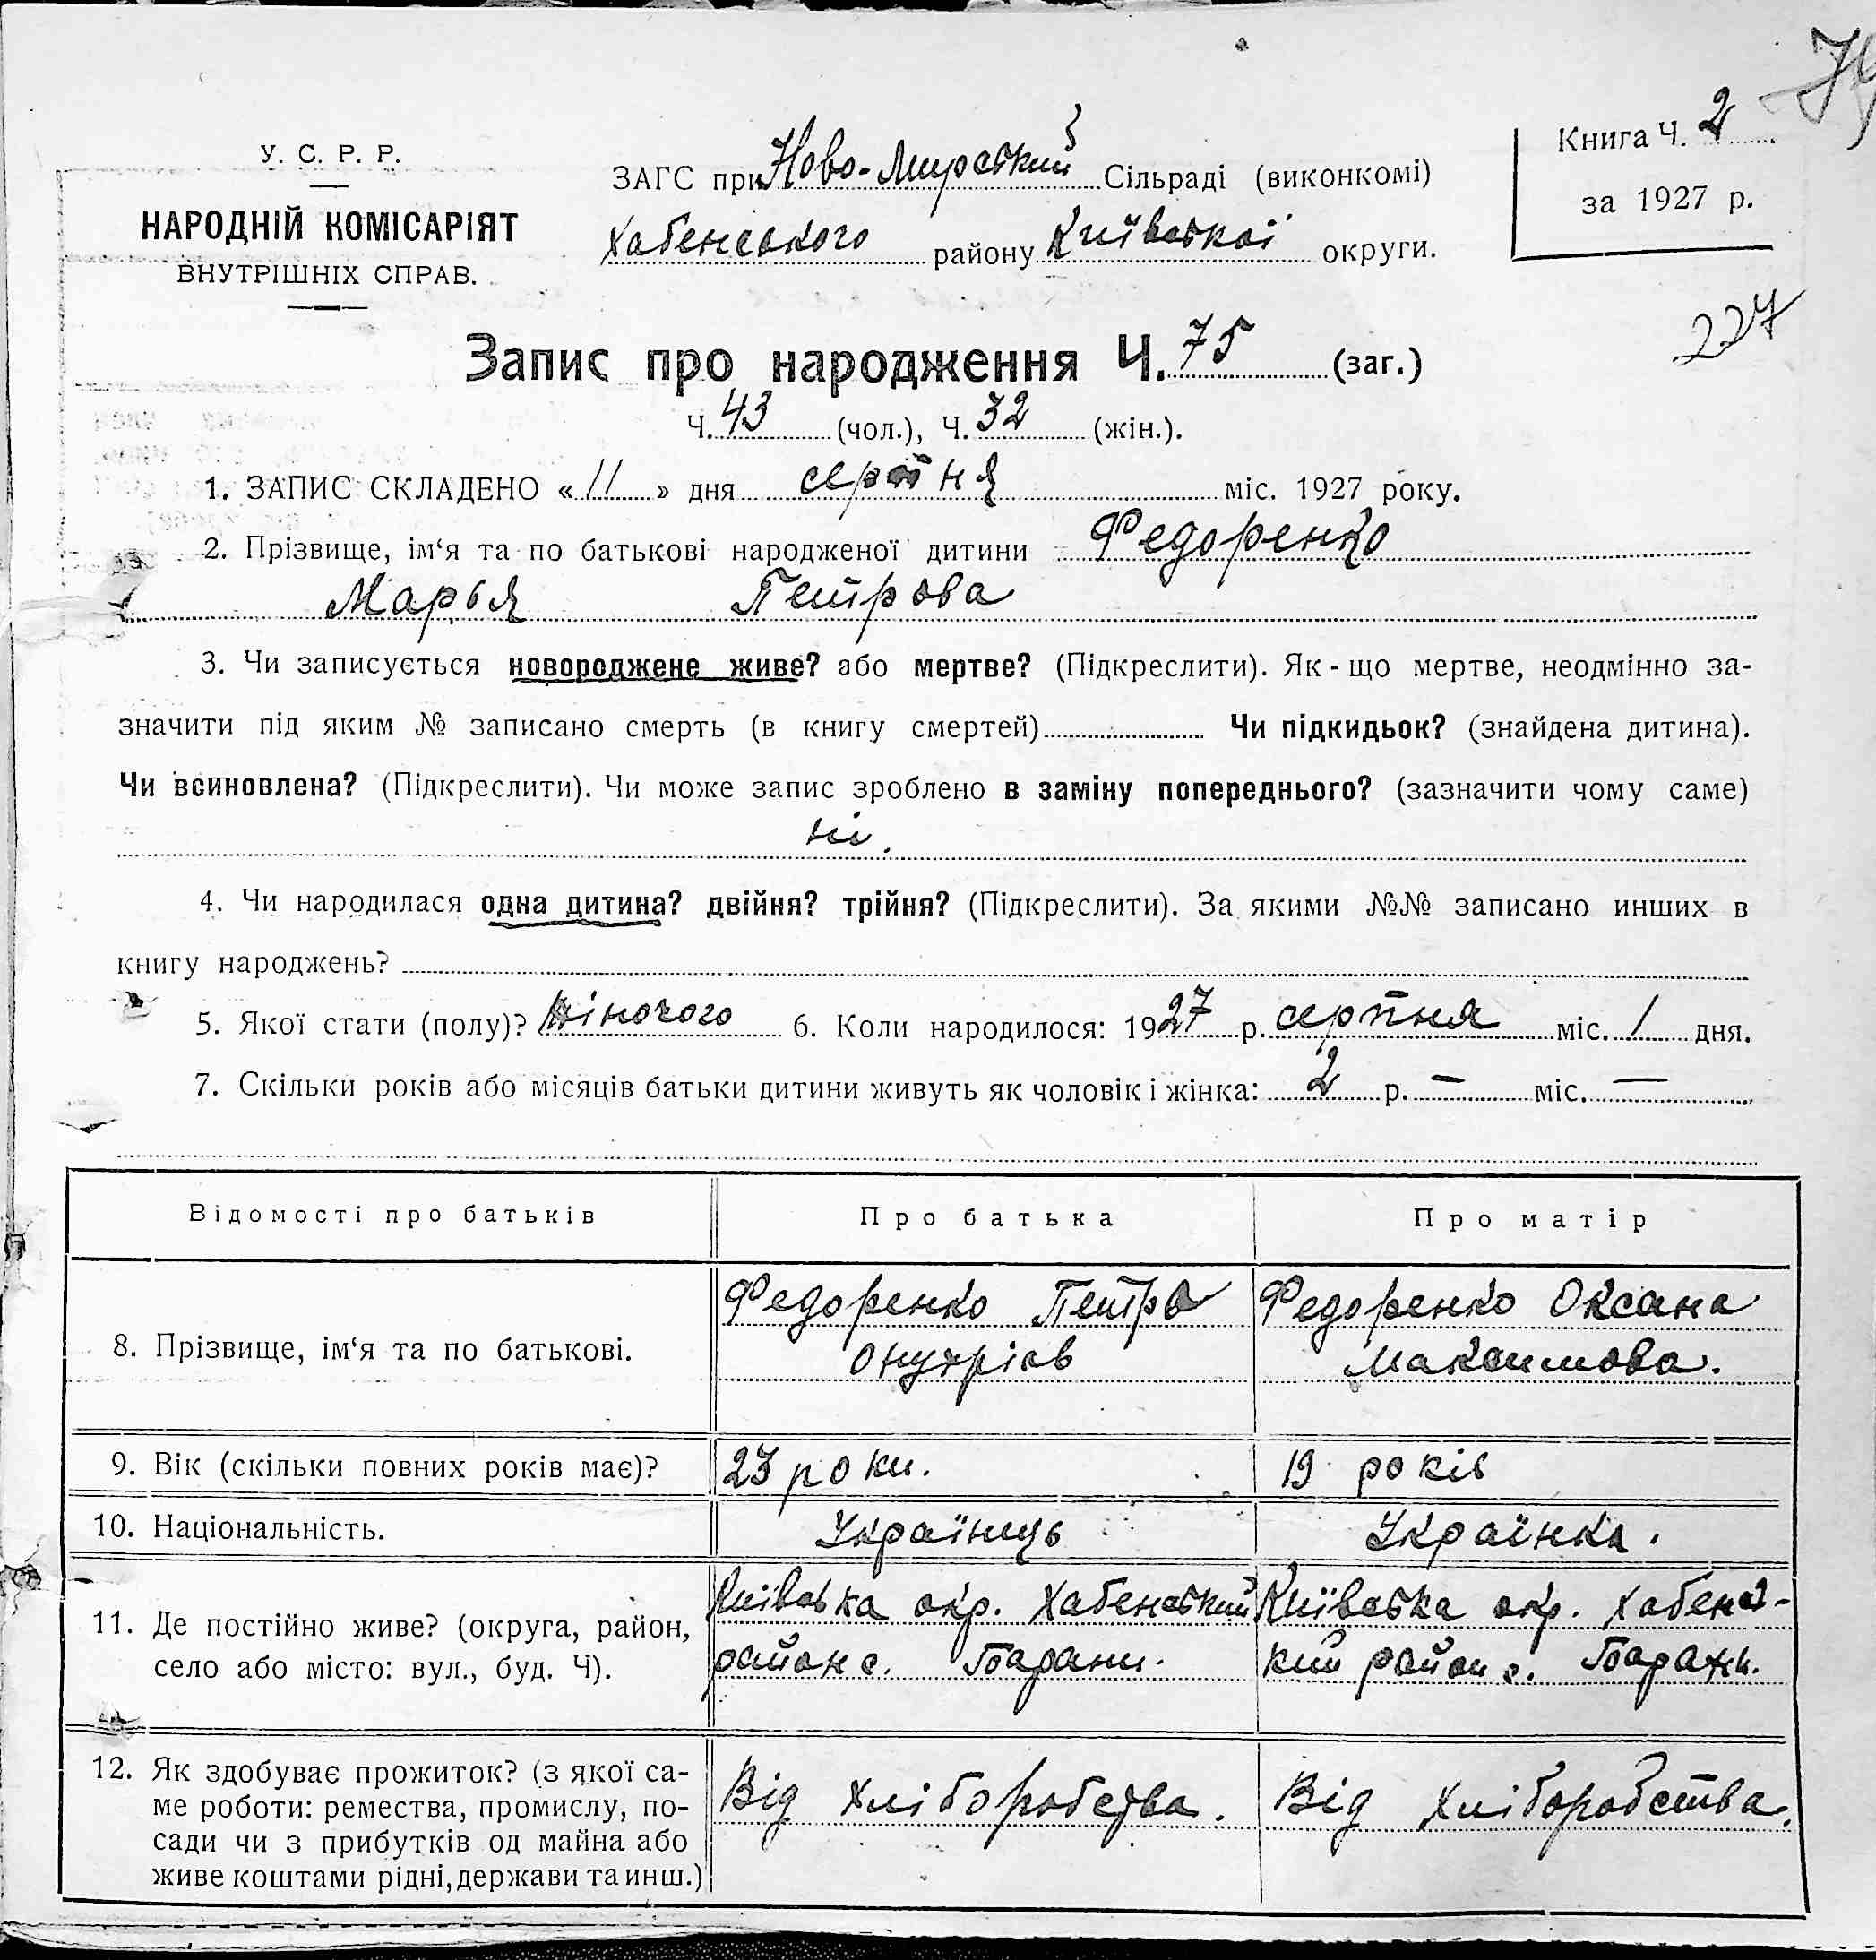 74
У. С. Р. Р.
НАРОДНІЙ КОМІСАРІЯТ
ВНУТРІШНІХ СПРАВ.
ЗАГС при Ново-Мирський Сільраді (виконкомі)
Хабенського району Київської округи.
Книга Ч. 2
за 1927 р.
227
Запис про народження Ч. 75 (заг.)
Ч. 43 (чол.), Ч. 32 (жін.).
1. ЗАПИС СКЛАДЕНО «11» дня серпня міс. 1927 року.
2. Прізвище, ім‘я та по батькові народженої дитини Федоренко
Марья Петрова
3. Чи записується новороджене живе? або мертве? (Підкреслити). Як-що мертве, неодмінно за-
значити під яким № записано смерть (в книгу смертей) Чи підкидьок? (знайдена дитина).
Чи всиновлена? (Підкреслити). Чи може запис зроблено в заміну попереднього? (зазначити чому саме)
ні.
4. Чи народилася одна дитина? двійня? трійня? (Підкреслити). За якими №№ записано инших в
книгу народжень?
5. Якої стати (полу)? жіночого 6. Коли народилося: 1927 р. серпня міс. 1 дня.
7. Скільки років або місяців батьки дитини живуть як чоловік і жінка: 2 р. — міс. —
Відомості про батьків Про батька Про матір
8. Прізвище, ім‘я та по батькові.
Федоренко Петро
Онухріев
Федоренко Оксана
Максимова.
9. Вік (скільки повних років має)? 23 роки. 19 років
10. Національність. Українець Українка.
11. Де постійно живе? (округа, район,
село або місто: вул., буд. Ч).
Київська окр. Хабенський
район с. Барани.
Київська окр. Хабенсь-
кий район с. Барани.
12. Як здобуває прожиток? (з якої са-
ме роботи: ремества, промислу, по-
сади чи з прибутків од майна або
живе коштами рідні, держави та инш.)
Від хліборобства.
Від хліборобства.